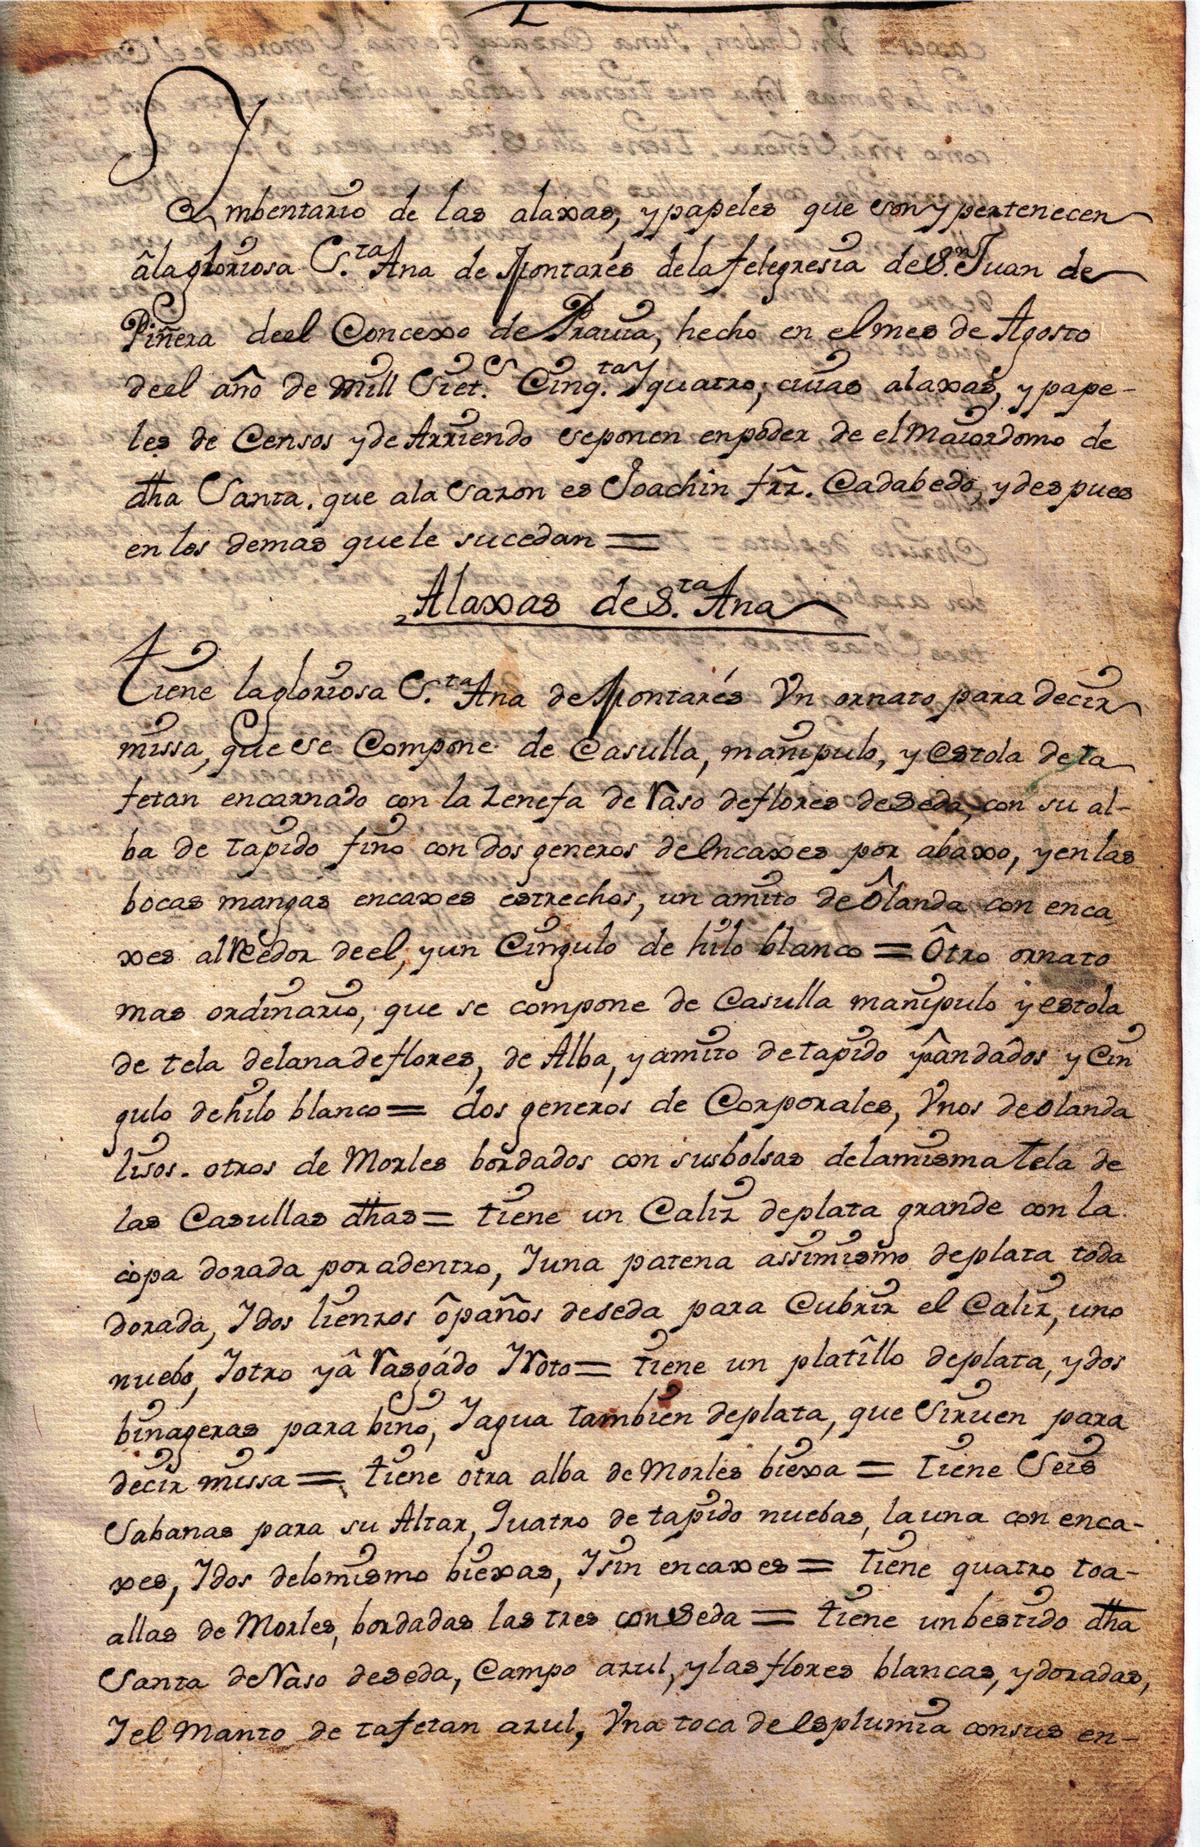 Ymbentario de las alaxas, y papeles que son y pertenecen
â la gloriosa S.ta Ana de Montarés de la felegresia de S.n Juan de
Piñera deel Concexo de Pravia, hecho en el mes de Agosto
deel año de mill Siet.s Cinq.ta y quatro, cuias alaxas, y pape-
les de Censos y de Arriendo se ponen en poder de el Maiordomo de
dha Santa. que a la sazon es Joachin frz. Cadabedo, y despues
en los demas que le sucedan =
Alaxas de S.ta Ana
Tiene la gloriosa S.ta Ana de Montarés Vn ornato para decir
missa, que se Compone de Casulla, manipulo, y Estola de ta
fetan encarnado con la zenefa de Raso de flores de seda, con su al-
ba de tapido fino con dos generos de Encaxes por abaxo, y en las
bocas mangas encaxes estrechos, un amito de Ôlanda con enca
xes al Reedor deel, y un Cingulo de hilo blanco = Ôtro ornato
mas ordinario, que se compone de Casulla manipulo y estola
de tela de lana de flores, de Alba, y amito de tapido yâ andados y Cin
gulo de hilo blanco = dos generos de Corporales, Vnos de olanda
lisos. otros de Morles bordados con sus bolsas de la misma Tela de
las Casullas dhas = tiene un Caliz de plata grande con la
copa dorada por adentro, I una patena assimismo de plata toda
dorada, I dos lienzos ô paños de seda para Cubrir el Caliz, uno
nuebo, I otro yâ Rasgádo I Roto = tiene un platillo de plata, y dos
binageras para bino, I agua tambien de plata, que Siruen para
decir missa = tiene otra alba de Morles biexa = tiene Seis
Sabanas para su Altar, Quatro de tapido nuebas, la una con enca-
xes, I dos de lo mismo biexas, I sin encaxes = tiene quatro toa-
allas de Morles, bordadas las tres con Seda = tiene un bestido dha
Santa de Raso de seda, Campo azul, y las flores blancas, y doradas,
I el Manto de tafetan azul, Vna toca de Esplumia con sus en-